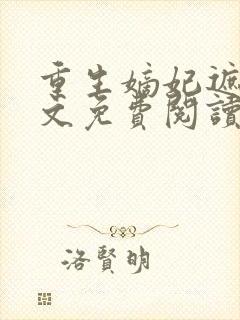 重生嫡妃遮
文免費閱讀
洛賢明